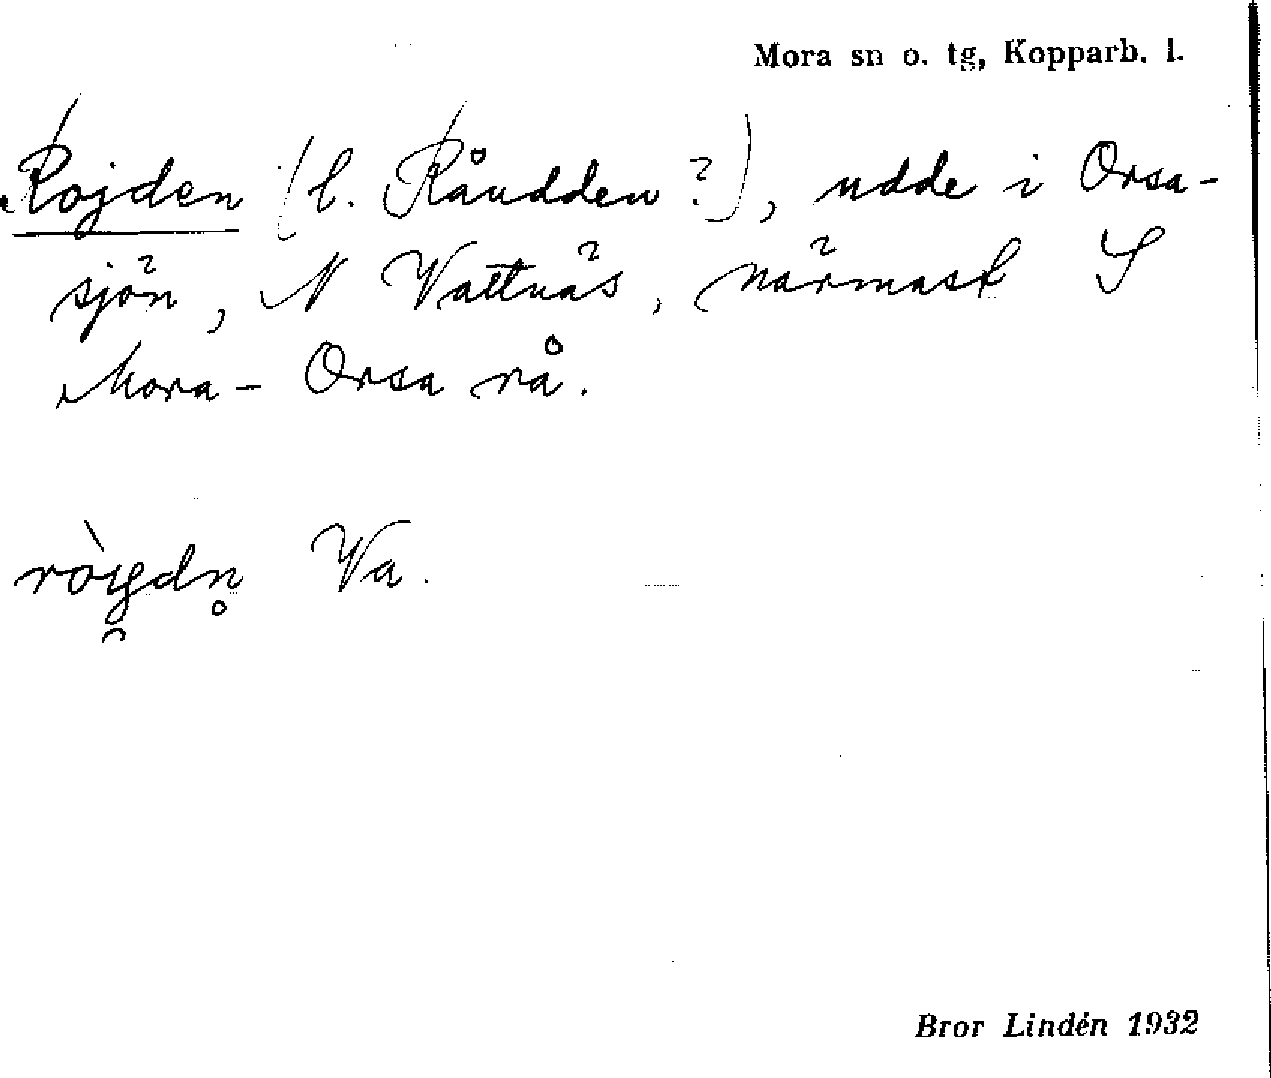 Mora sn o. tg, Kopparb. l.
Rojden (l. Råudden ?), udde i Orsa-
sjön, N Vattnäs, närmast S
Mora - Orsa rå.
Va.
Bror Lindén 1932